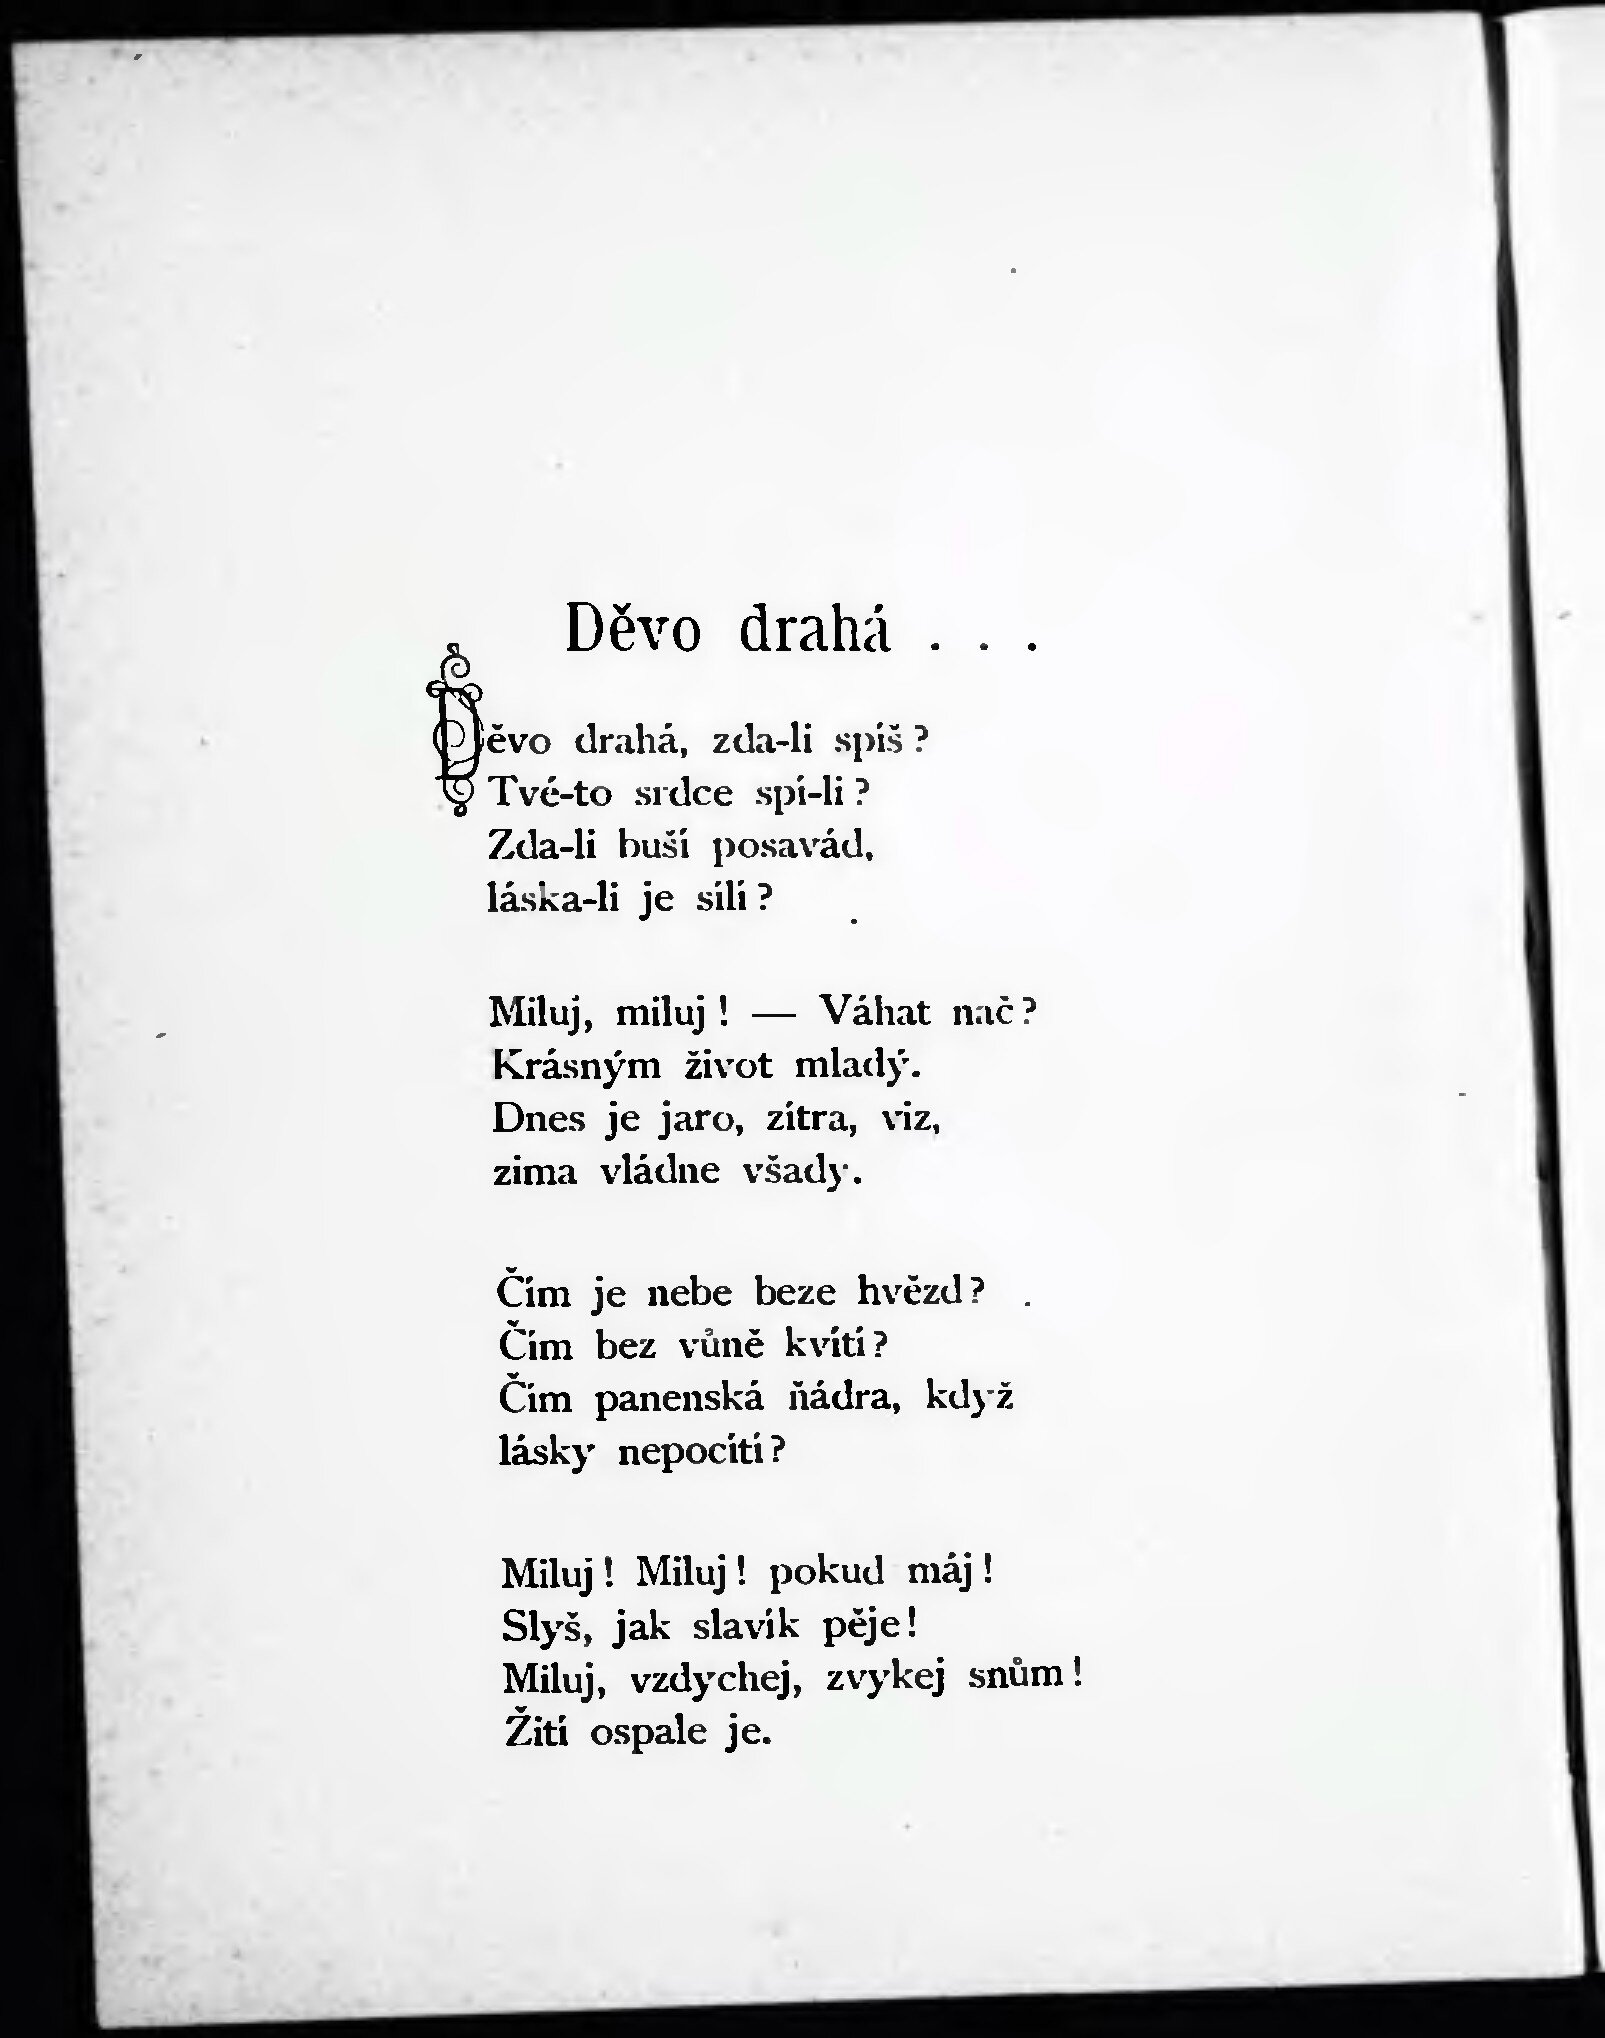 Děvo drahá . . .
Děvo drahá, zda-li spíš?
Tvé-to srdce spí-li?
Zda-li buší posavád,
láska-li je sílí?
Miluj, miluj! — Váhat nač?
Krásným život mladý.
Dnes je jaro, zítra, viz,
zima vládne všady.
Čím je nebe beze hvězd?
Čím bez vůně kvítí?
Čím panenská ňádra, když
lásky nepocítí?
Miluj! Miluj! pokud máj!
Slyš, jak slavík pěje!
Miluj, vzdychej, zvykej snům!
Žití ospale je.